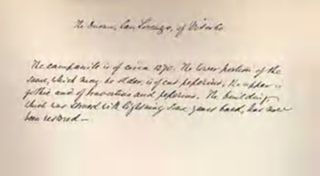 The Duomo, San Lorenzo, of Viterbo
The campanile is of circa 1270. The lower portion of the
same, which may be older, is of cut peperino, the upper is
gothic and of travertine and peperino. The building,
which was struck with lightning some years back, has now
been restored —